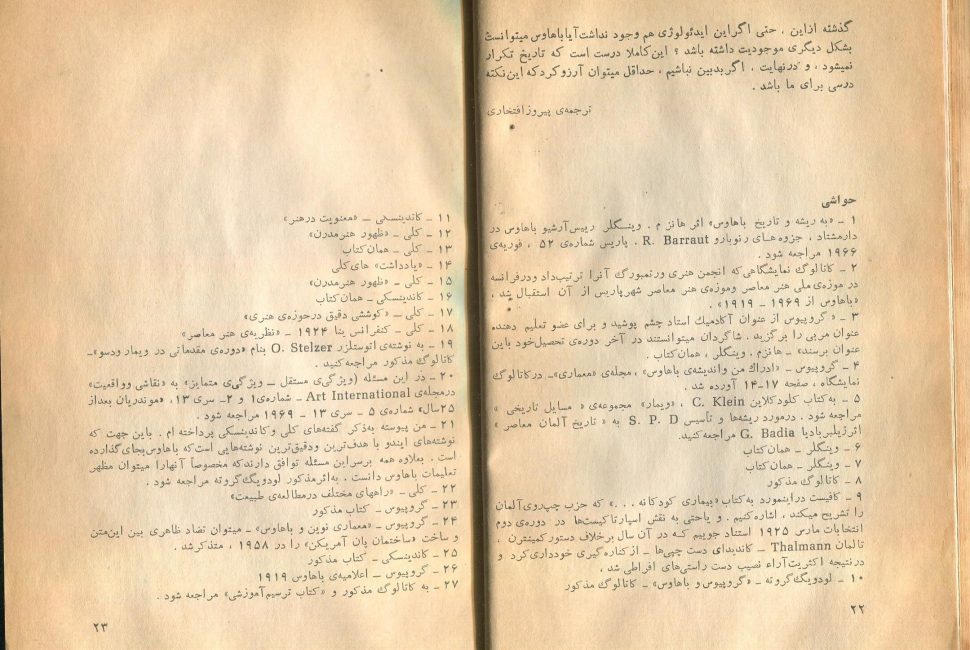 گذشته ازاین ، حتی اگراین ایدئولوژی هم وجود نداشت‌آیاباهاوس میتوانست
بشکل دیگری موجودیت داشته باشد ؟ این‌کاملا درست است که تاریخ تکرار
نمیشود ، و درنهایت ، اگربدبین نباشیم ، حداقل میتوان آرزوکردکه این‌نکته
درسی برای ما باشد .
ترجمه‌ی پیروزافتخاری
حواشی
۱ ــ «به ریشه و تاریخ باهاوس» اثر هانز م . وینگلر رییس‌آرشیو باهاوس در
دارمشتاد ، جزوه هـای رنوبارو R. Barraut . پاریس شماره‌ی ۵۲ ، فوریه‌ی
۱۹۶۶ مراجعه شود .
۲ ــ کاتالوگ نمایشگاهی‌که انجمن هنری ورتمبورگ آنرا ترتیب‌داد ودرفرانسه
در موزه‌ی‌ملی هنر معاصر وموزه‌ی هنر معاصر شهرپاریس از آن استقبال شد ،
«باهاوس از ۱۹۶۹ ــ ۱۹۱۹» .
۳ ــ « گروپیوس از عنوان آکادمیك استاد چشم پوشید و برای عضو تعلیم دهنده
عنوان مربی را برگزید . شاگردان میتوانستند در آخر دوره‌ی تحصیل‌خود باین
عنوان برسند» ــ هانزم . وینگلر ، همان‌کتاب .
۴ ــ گروپیوس ــ «ادراك من واندیشه‌ی باهاوس» ، مجله‌ی «معماری»ــ درکاتالوگ
نمایشگاه ، صفحه ۱۷ــ۱۴ آورده شد .
۵ ــ به‌کتاب کلودکلاین C. Klein ، «ویمار» مجموعه‌ی « مسایل تاریخی »
مراجعه شود . درمورد ریشه‌ها و تأسیس S. P. D به « تاریخ آلمان معاصر »
اثرژیلبربادیا G. Badia مراجعه‌کنید.
۶ ــ وینگلر ــ همان‌کتاب
۷ ــ وینگلر ــ همان‌کتاب
۸ ــ کاتالوگ مذکور
۹ ــ کافیست دراینمورد به‌کتاب «بیماری کودکانه . . .» که حزب چپ‌روی‌آلمان
را تشریح میکند ، اشاره‌کنیم . و یاحتی به نقش اسپارتاکیست‌ها در دوره‌ی دوم
انتخابات مارس ۱۹۲۵ استناد جوییم کـه در آن سال برخلاف دستور کمینترن ،
تالمان Thalmann ــ کاندیدای دست چپی‌ها ــ ازکناره گیری خودداری‌کرد و
درنتیجه اکثریت‌آراء نصیب دست راستی‌های افراطی شد ،
۱۰ ــ لودویگ‌گروته ــ «گروپیوس و باهاوس» ــ کاتالوگ مذکور
۲۲
۱۱ ــ کاندینسکی ــ «معنویت درهنر»
۱۲ ــ کلی ــ «ظهور هنرمدرن»
۱۳ ــ کلی ــ همان‌کتاب
۱۴ ــ «یادداشت» های‌کلی
۱۵ ــ کلی ــ «ظهور هنرمدرن»
۱۶ ــ کاندینسکی ــ همان‌کتاب
۱۷ ــ کلی ــ «کوششی دقیق درحوزه‌ی هنری»
۱۸ ــ کلی ــ کنفرانس ینا ۱۹۲۴ ــ «نظریه‌ی هنر معاصر»
۱۹ ــ به نوشته‌ی اتوستلزر O. Stelzer بنام «دوره‌ی مقدماتی در ویمار ودسو»ــ
کاتالوگ مذکور مراجعه‌کنید .
۲۰ ــ در این مسئله (ویژگی‌ی مستقل ــ ویژگی‌ی متمایز» به «نقاشی وواقعیت»
درمجله‌ی Art International ــ شماره‌ی۱ و ۲ــ سری ۱۳، «موندریان بعداز
۲۵سال» شماره‌ی ۵ ــ سری ۱۳ ــ ۱۹۶۹ مراجعه شود .
۲۱ ــ من پیوسته به‌ذکر گفته‌های کلی وکاندینسکی پرداخته ام . باین جهت که
نوشته‌های ایندو با هدف‌ترین ودقیق‌ترین نوشته‌هایی است‌که باهاوس‌بجای‌گذارده
است . بعلاوه همه برسراین مسئله توافق دارندکه مخصوصاً آنهارا میتوان مظهر
تعلیمات باهاوس دانست . به‌اثرمذکور لودویگ‌گروته مراجعه شود .
۲۲ ــ کلی ــ «راههای مختلف درمطالعه‌ی طبیعت»
۲۳ ــ گروپیوس ــ کتاب مذکور
۲۴ ــ گروپیوس ــ «معماری نوین و باهاوس» ــ میتوان تضاد ظاهری بین این‌متن
و ساخت «ساختمان پان آمریکن» را در ۱۹۵۸ ، متذکرشد .
۲۵ ــ کاندینسکی ــ کتاب مذکور
۲۶ ــ گروپیوس ــ اعلامیه‌ی باهاوس ۱۹۱۹
۲۷ ــ به کاتالوگ مذکور و «کتاب ترسیم‌آموزشی» مراجعه شود .
۲۳